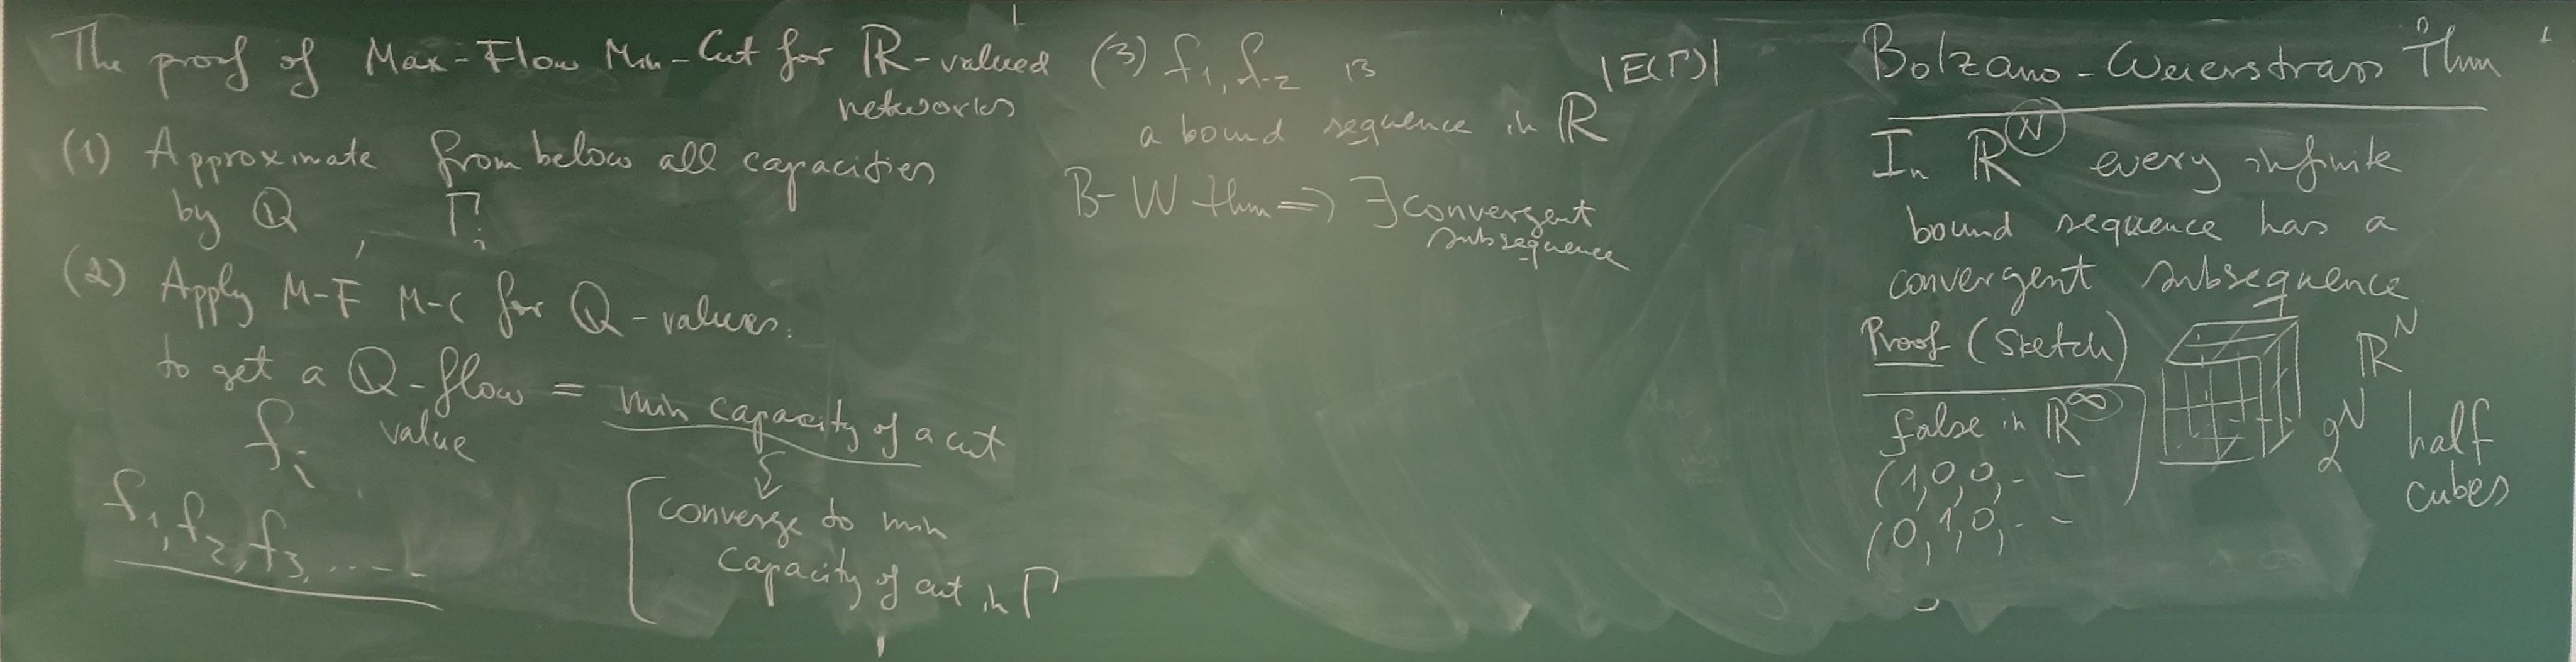 The proof of Max-Flow Min-Cut for ℝ-valued
networks
(1) Approximate from below all capacities
by Q, Γi
(2) Apply M-F M-C for Q-values.
to get a Q-flow = min capacity of a cut
fi value
f1, f2, f3, ....
converge to min
capacity of cut in Γ
(3) f1, f2 is
a bound sequence in ℝ |E(Γ)|
B-W thm ⇒ ∃ convergent
subsequence
Bolzano-Weierstrass Thm
In ℝ^N every infinite
bound sequence has a
convergent subsequence
Proof (Sketch)
ℝ^N
2^N half
cubes
false in ℝ^∞
(1,0,0,- -
(0,1,0,- -